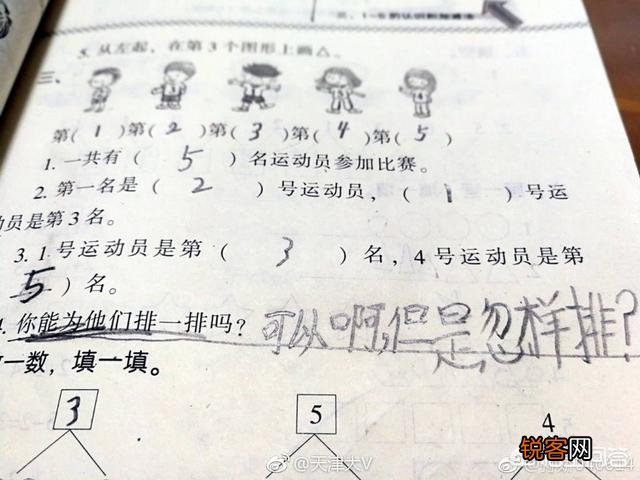 5. 从左起，在第3个图形上画△。
三、
第( 1 )第( 2 )第( 3 )第( 4 )第( 5 )
1. 一共有（ 5 ）名运动员参加比赛。
2. 第一名是（ 2 ）号运动员，（ 1 ）号运
动员是第3名。
3. 1号运动员是第（ 3 ）名，4号运动员是第
5 ）名。
4. 你能为他们排一排吗？ 可以啊,但是怎样排?
一数，填一填。
3 5 4
@天津大V
锐客网